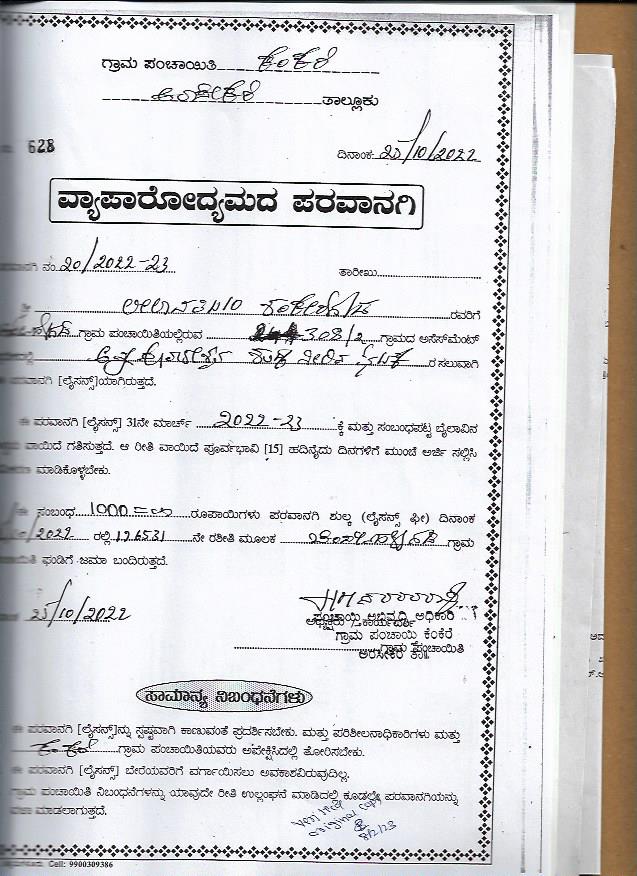 ಗ್ರಾಮ ಪಂಚಾಯಿತಿ ಕೆಂಕೆರೆ
ಅರಸೀಕೆರೆ ತಾಲ್ಲೂಕು
628
ದಿನಾಂಕ 25/10/2022
ವ್ಯಾಪಾರೋದ್ಯಮದ ಪರವಾನಗಿ
ನಗಿ ನಂ 20/2022-23 ತಾರೀಖು
ರವರಿಗೆ
ಗ್ರಾಮ ಪಂಚಾಯಿತಿಯಲ್ಲಿರುವ 308/2 ಗ್ರಾಮದ ಅಸೆಸ್‌ಮೆಂಟ್
ಶುದ್ಧ ನೀರಿನ ಘಟಕ ರ ಸಲುವಾಗಿ
ಪರವಾನಗಿ [ಲೈಸನ್ಸ್]ಯಾಗಿರುತ್ತದೆ.
ಈ ಪರವಾನಗಿ [ಲೈಸನ್ಸ್] 31ನೇ ಮಾರ್ಚ್ 2022-23 ಕ್ಕೆ ಮತ್ತು ಸಂಬಂಧಪಟ್ಟ ಬೈಲಾವಿನ
ವಾಯಿದೆ ಗತಿಸುತ್ತದೆ. ಆ ರೀತಿ ವಾಯಿದೆ ಪೂರ್ವಭಾವಿ [15] ಹದಿನೈದು ದಿನಗಳಿಗೆ ಮುಂಚೆ ಅರ್ಜಿ ಸಲ್ಲಿಸಿ
ಮಾಡಿಕೊಳ್ಳಬೇಕು.
ಈ ಸಂಬಂಧ 1000=00 ರೂಪಾಯಿಗಳು ಪರವಾನಗಿ ಶುಲ್ಕ (ಲೈಸನ್ಸ್ ಫೀ) ದಿನಾಂಕ
10/2022 ರಲ್ಲಿ 126531 ನೇ ರಶೀತಿ ಮೂಲಕ ಗ್ರಾಮ
ಫಂಡಿಗೆ ಜಮಾ ಬಂದಿರುತ್ತದೆ.
25/10/2022
ಪಂಚಾಯಿ ಅಭಿವೃದ್ಧಿ ಅಧಿಕಾರಿ
ಅಧ್ಯಕ್ಷರು / ಕಾರ್ಯದರ್ಶಿ
ಗ್ರಾಮ ಪಂಚಾಯಿ ಕೆಂಕೆರೆ
ಗ್ರಾಮ ಪಂಚಾಯಿತಿ
ಅರಸೀಕೆರೆ ತಾ||
ಸಾಮಾನ್ಯ ನಿಬಂಧನೆಗಳು
ಈ ಪರವಾನಗಿ [ಲೈಸನ್ಸ್]ನ್ನು ಸ್ಪಷ್ಟವಾಗಿ ಕಾಣುವಂತೆ ಪ್ರದರ್ಶಿಸಬೇಕು. ಮತ್ತು ಪರಿಶೀಲನಾಧಿಕಾರಿಗಳು ಮತ್ತು
ಕೆಂಕೆರೆ ಗ್ರಾಮ ಪಂಚಾಯಿತಿಯವರು ಅಪೇಕ್ಷಿಸಿದಲ್ಲಿ ತೋರಿಸಬೇಕು.
ಈ ಪರವಾನಗಿ [ಲೈಸನ್ಸ್] ಬೇರೆಯವರಿಗೆ ವರ್ಗಾಯಿಸಲು ಅವಕಾಶವಿರುವುದಿಲ್ಲ.
ಗ್ರಾಮ ಪಂಚಾಯಿತಿ ನಿಬಂಧನೆಗಳನ್ನು ಯಾವುದೇ ರೀತಿ ಉಲ್ಲಂಘನೆ ಮಾಡಿದಲ್ಲಿ ಕೂಡಲೇ ಪರವಾನಗಿಯನ್ನು
ಮಾಡಲಾಗುತ್ತದೆ.
original copy
8/2/23
Cell: 9900309386